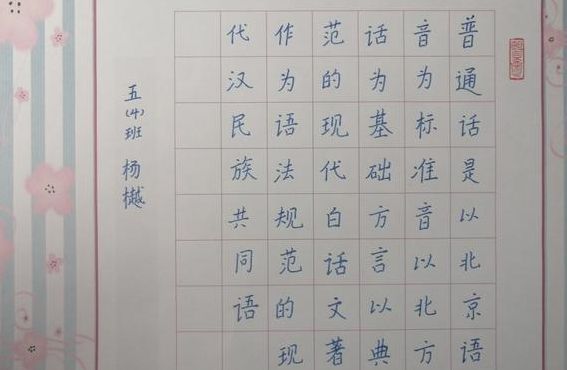 普通话是以北京语
音为标准音以北方
话为基础方言以典
范的现代白话文著
作为语法规范的现
代汉民族共同语
五(4)班 杨樾